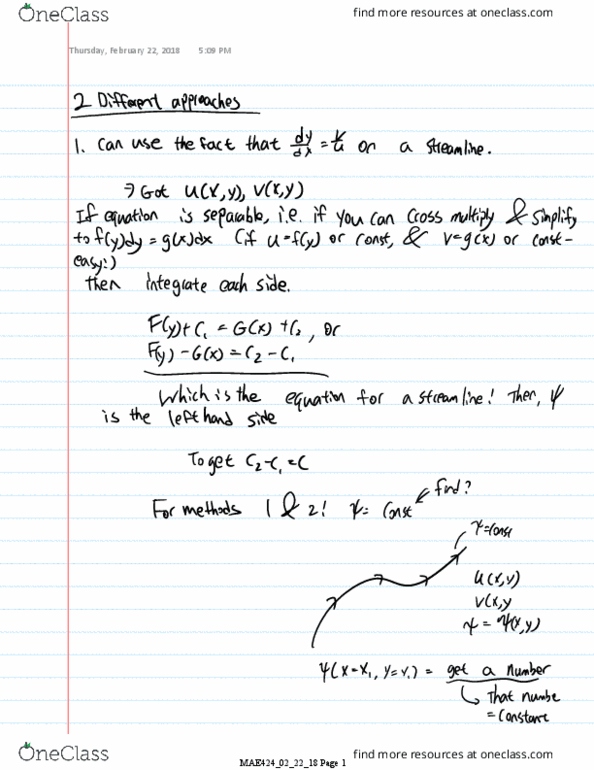 OneClass
find more resources at oneclass.com
Thursday, February 22, 2018 5:09 PM
2 Different approaches
1. Can use the fact that dy/dx = v/u on a streamline.
→ Got u(x,y), v(x,y)
If equation is separable, i.e. if you can cross multiply & simplify
to f(y)dy = g(x)dx (if u=f(y) or const, & v=g(x) or const-
easy!)
then integrate each side.
F(y)+C₁ = G(x) +C₂, or
F(y) - G(x) = C₂ - C₁
Which is the equation for a streamline! Then, ψ
is the left hand side
To get C₂-C₁=C
For methods 1 & 2! ψ= Const
find?
ψ=const
u(x,y)
v(x,y
ψ = ψ(x,y)
ψ(x=x₁, y=y₁) = get a number
↳ That numbe
= constant
OneClass
find more resources at oneclass.com
MAE424_02_22_18 Page 1